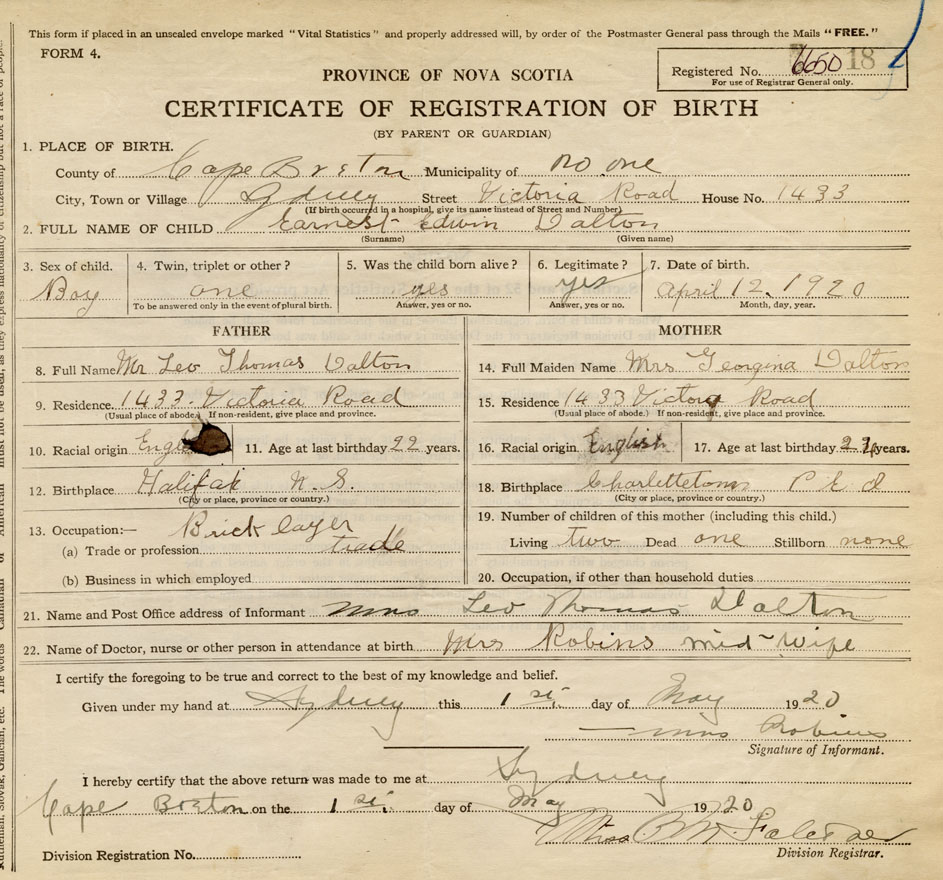 This form if placed in an unsealed envelope marked "Vital Statistics" and properly addressed will, by order of the Postmaster General pass through the Mails "FREE."
FORM 4.
PROVINCE OF NOVA SCOTIA
Registered No. 6650 18
For use of Registrar General only.
CERTIFICATE OF REGISTRATION OF BIRTH
(BY PARENT OR GUARDIAN)
1. PLACE OF BIRTH.
County of Cape Breton Municipality of no one
City, Town or Village Sydney Street Victoria Road House No. 1433
(If birth occurred in a hospital, give its name instead of Street and Number)
2. FULL NAME OF CHILD Earnest Edwin Dalton
(Surname) (Given name)
3. Sex of child. 4. Twin, triplet or other? 5. Was the child born alive? 6. Legitimate? 7. Date of birth.
Boy one yes yes April 12. 1920
To be answered only in the event of plural birth. Answer, yes or no. Answer, yes or no. Month, day, year.
FATHER MOTHER
8. Full Name Mr Leo Thomas Dalton 14. Full Maiden Name Mrs Georgina Dalton
9. Residence 1433 Victoria Road 15. Residence 1433 Victoria Road
(Usual place of abode.) If non-resident, give place and province. (Usual place of abode.) If non-resident, give place and province.
10. Racial origin 11. Age at last birthday 22 years. 16. Racial origin English 17. Age at last birthday years.
12. Birthplace Halifax N. S. 18. Birthplace Charlettetown P E d
(City or place, province or country.) (City or place, province or country.)
13. Occupation:— Brick layer 19. Number of children of this mother (including this child.)
(a) Trade or profession trade Living two Dead one Stillborn none
(b) Business in which employed 20. Occupation, if other than household duties
21. Name and Post Office address of Informant Mrs Leo Thomas Dalton
22. Name of Doctor, nurse or other person in attendance at birth Mrs Robins mid-wife
I certify the foregoing to be true and correct to the best of my knowledge and belief.
Given under my hand at Sydney this 1 st. day of May 1920
Mrs Robins
Signature of Informant.
I hereby certify that the above return was made to me at Sydney
Cape Breton on the 1 st. day of May 1920
Miss
Division Registration No. Division Registrar.